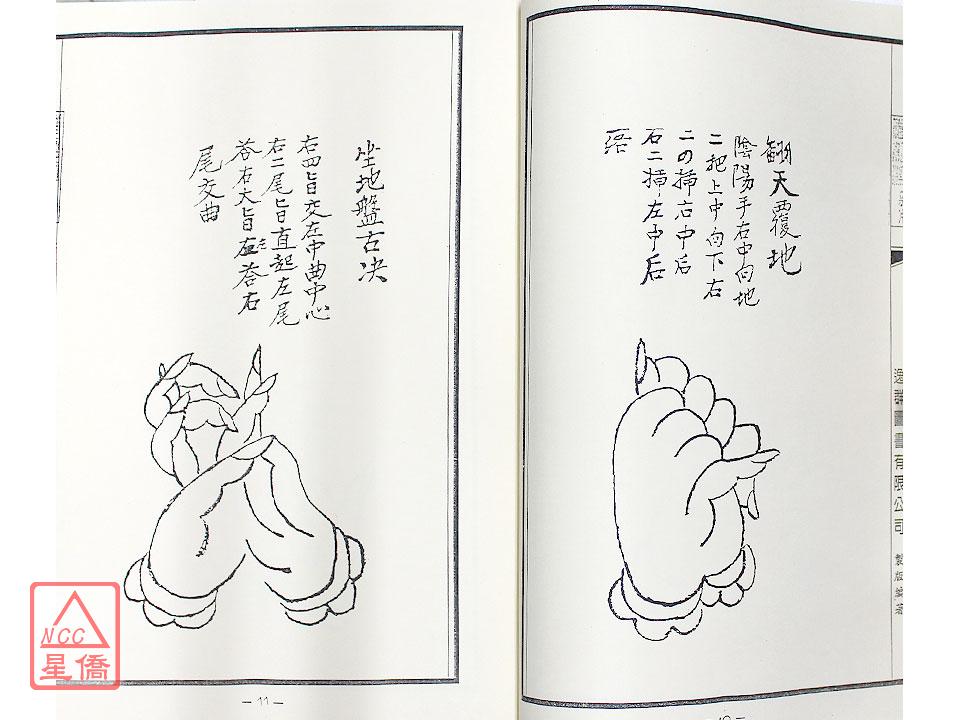 翻天覆地
陰陽手右中向地
二把上中向下右
二の揷右中后
右二揷左中后
唔
坐地盤古決
右四旨交左中曲中心
右二尾旨直起左尾
荅右大旨左荅右
尾交曲
逸群圖書有限公司 製版編著
— 11 —
NCC
星僑